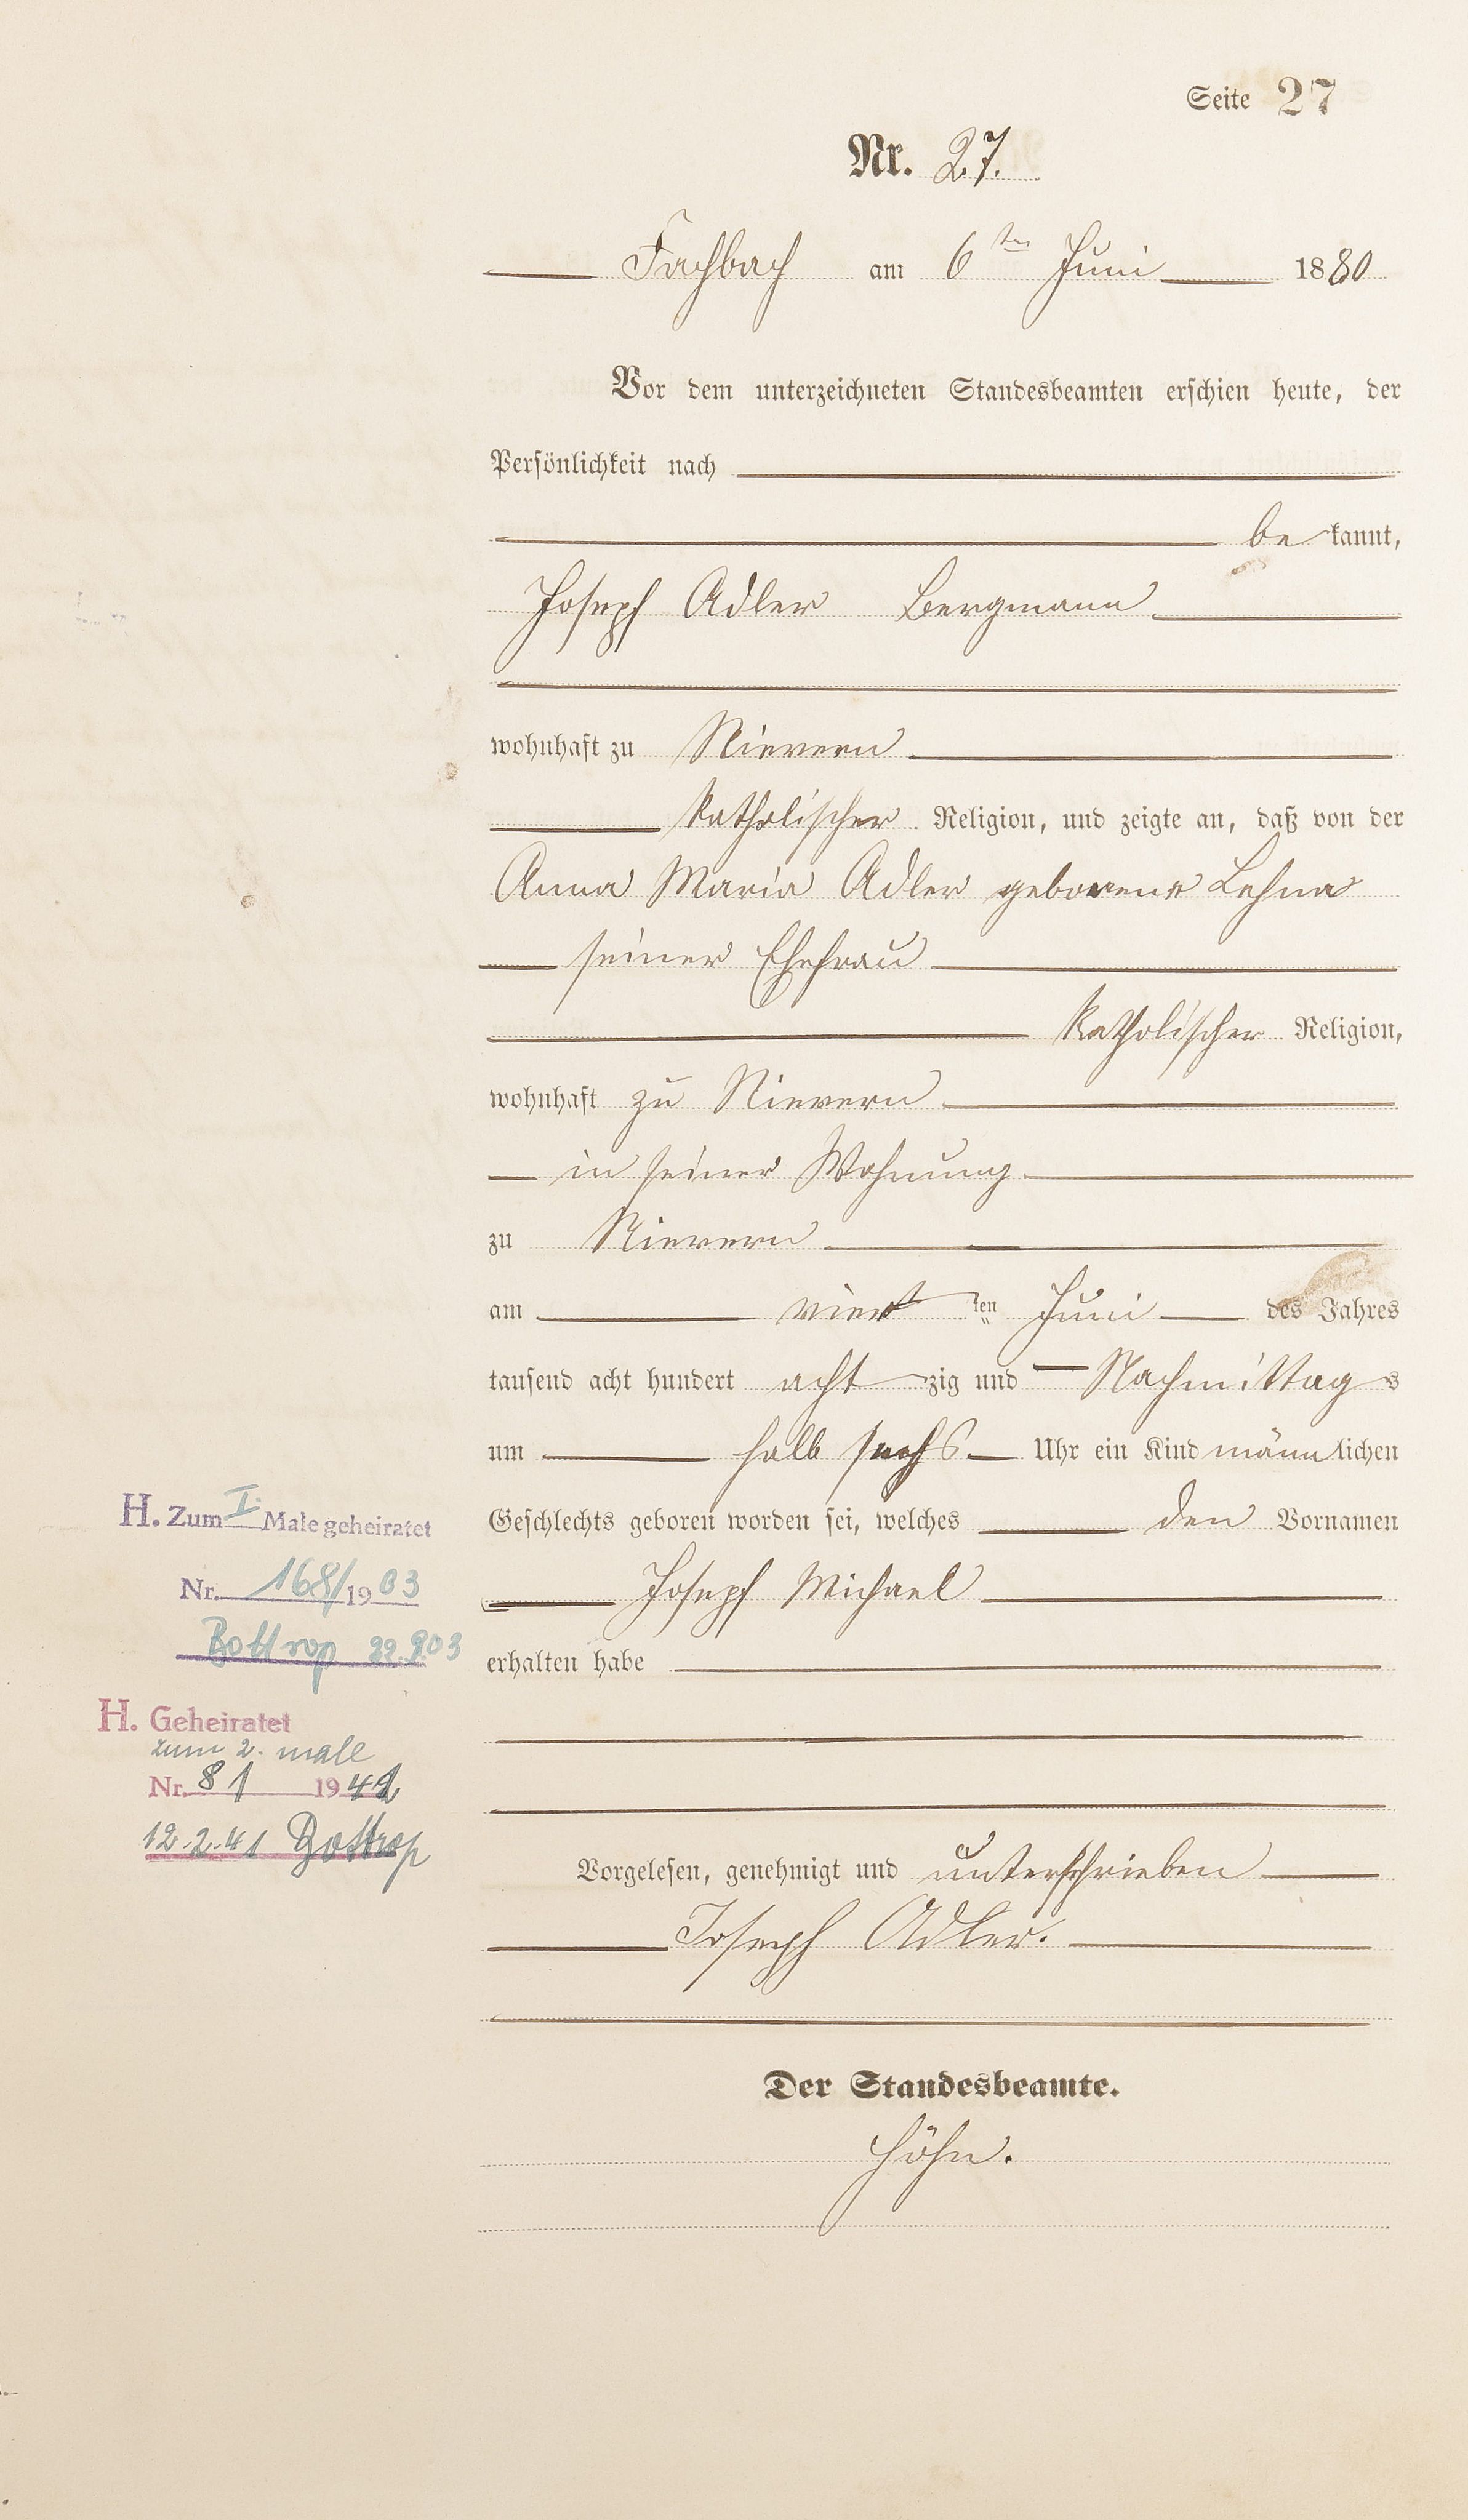 Seite 27
Nr. 27.
Fachbach am 6ten Juni 1880
Vor dem unterzeichneten Standesbeamten erschien heute, der
Persönlichkeit nach
bekannt,
Joseph Adler Bergmann
wohnhaft zu Nievern
katholischer Religion, und zeigte an, daß von der
Anna Maria Adler geborene Lehna
seiner Ehefrau
katholischer Religion,
wohnhaft zu Nievern
in seiner Wohnung
zu Nievern
am vierten Juni des Jahres
tausend acht hundert achtzig und Nachmittags
um halb sechs Uhr ein Kind männlichen
Geschlechts geboren worden sei, welches den Vornamen
Joseph Michael
erhalten habe
Vorgelesen, genehmigt und unterschrieben
Joseph Adler.
Der Standesbeamte.
Höhn.
H. Zum I. Male geheiratet
Nr. 168/1903
Bottrop 22.9.03
H. Geheiratet
zum 2. male
Nr. 81 1941
12.2.41 Bottrop